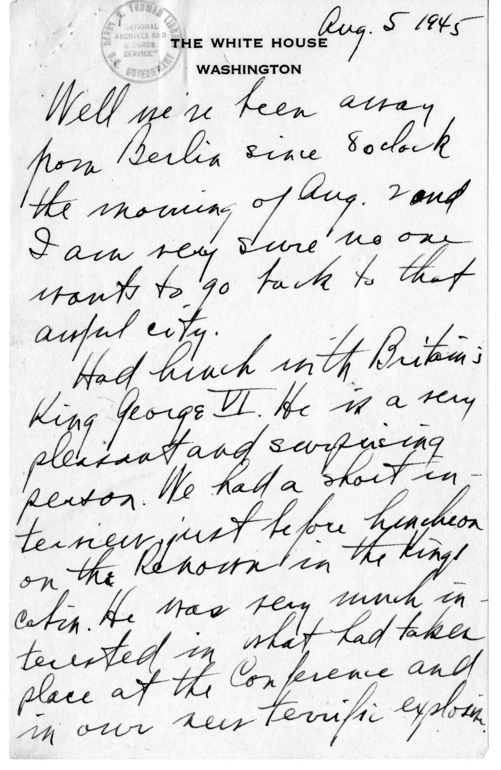 Aug. 5 1945
HARRY S. TRUMAN LIBRARY
"NATIONAL
ARCHIVES AND
RECORDS
SERVICE"
U.S. GOVERNMENT
THE WHITE HOUSE
WASHINGTON
Well we've been away
from Berlin since 8 oclock
the morning of Aug. 2 and
I am very sure no one
wants to go back to that
awful city.
Had lunch with Britain's
King George VI. He is a very
pleasant and surprising
person. We had a short in-
terview just before luncheon
on the Renown in the Kings
cabin. He was very much in-
terested in what had taken
place at the Conference and
in our new terrific explosion.